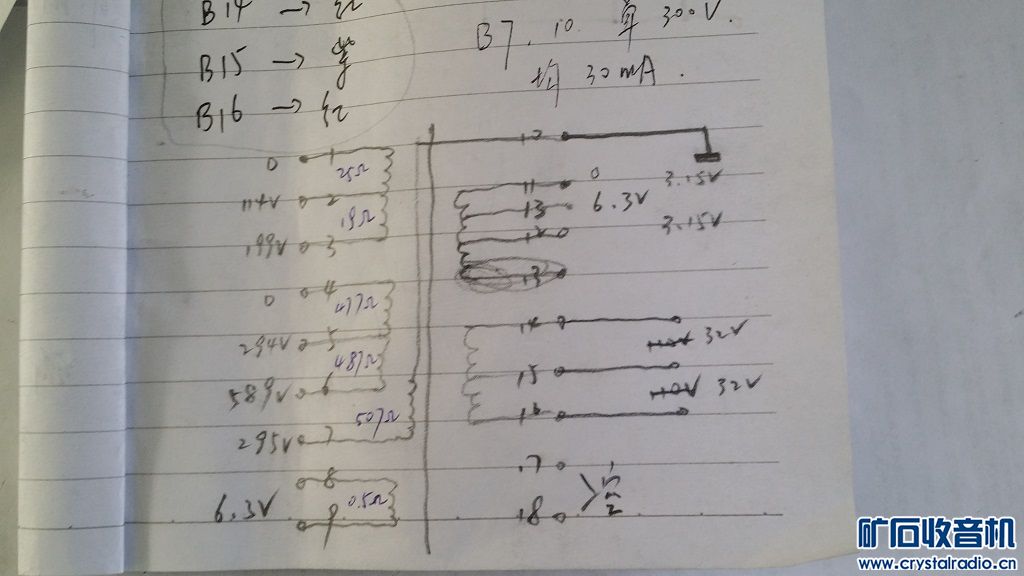 B14 → 红
B15 → 紫
B16 → 红
B7. 10. 单 300V.
均 30mA.
0 1
25Ω
114V 2
19Ω
199V 3
0 4
477Ω
294V 5
487Ω
589V 6
507Ω
295V 7
8
6.3V 0.5Ω
9
10
11 0 3.15V
13 6.3V
12 3.15V
14
32V
15
32V
16
17
18
矿石收音机
www.crystalradio.cn